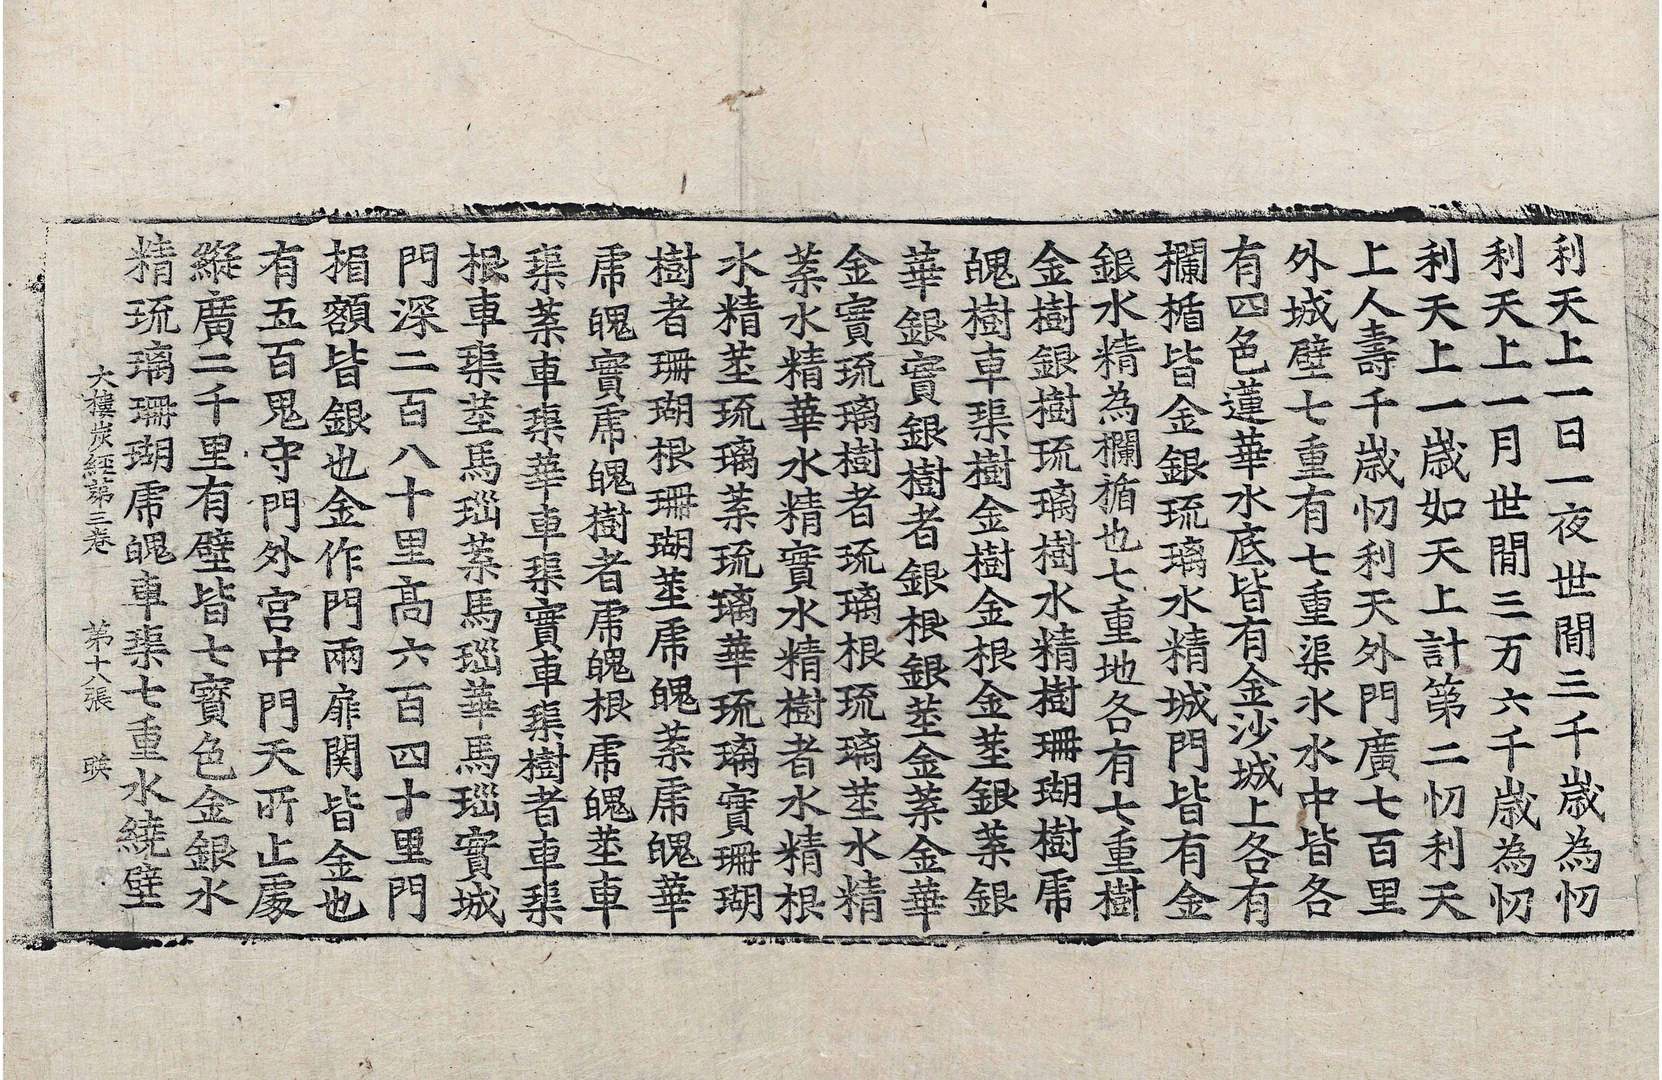 利天上一日一夜世間三千歲為忉
利天上一月世間三万六千歲為忉
利天上一歲如天上計第二忉利天
上人壽千歲忉利天外門廣七百里
外城壁七重有七重渠水水中皆各
有四色蓮華水底皆有金沙城上各有
欄楯皆金銀琉璃水精城門皆有金
銀水精為欄楯也七重地各有七重樹
金樹銀樹琉璃樹水精樹珊瑚樹虎
魄樹車璖樹金樹金根金莖銀葉銀
華銀實銀樹者銀根銀莖金葉金華
金實琉璃樹者琉璃根琉璃莖水精
葉水精華水精實水精樹者水精根
水精莖琉璃葉琉璃華琉璃實珊瑚
樹者珊瑚根珊瑚莖虎魄葉虎魄華
虎魄實虎魄樹者虎魄根虎魄莖車
璖葉車璖華車璖實車璖樹者車璖
根車璖莖馬瑙葉馬瑙華馬瑙實城
門深二百八十里高六百四十里門
楣額皆銀也金作門兩扉関皆金也
有五百鬼守門外宮中門天所止處
縱廣二千里有壁皆七寶色金銀水
精琉璃珊瑚虎魄車璖七重水繞壁
大樓炭經第三卷 第十八張 暎